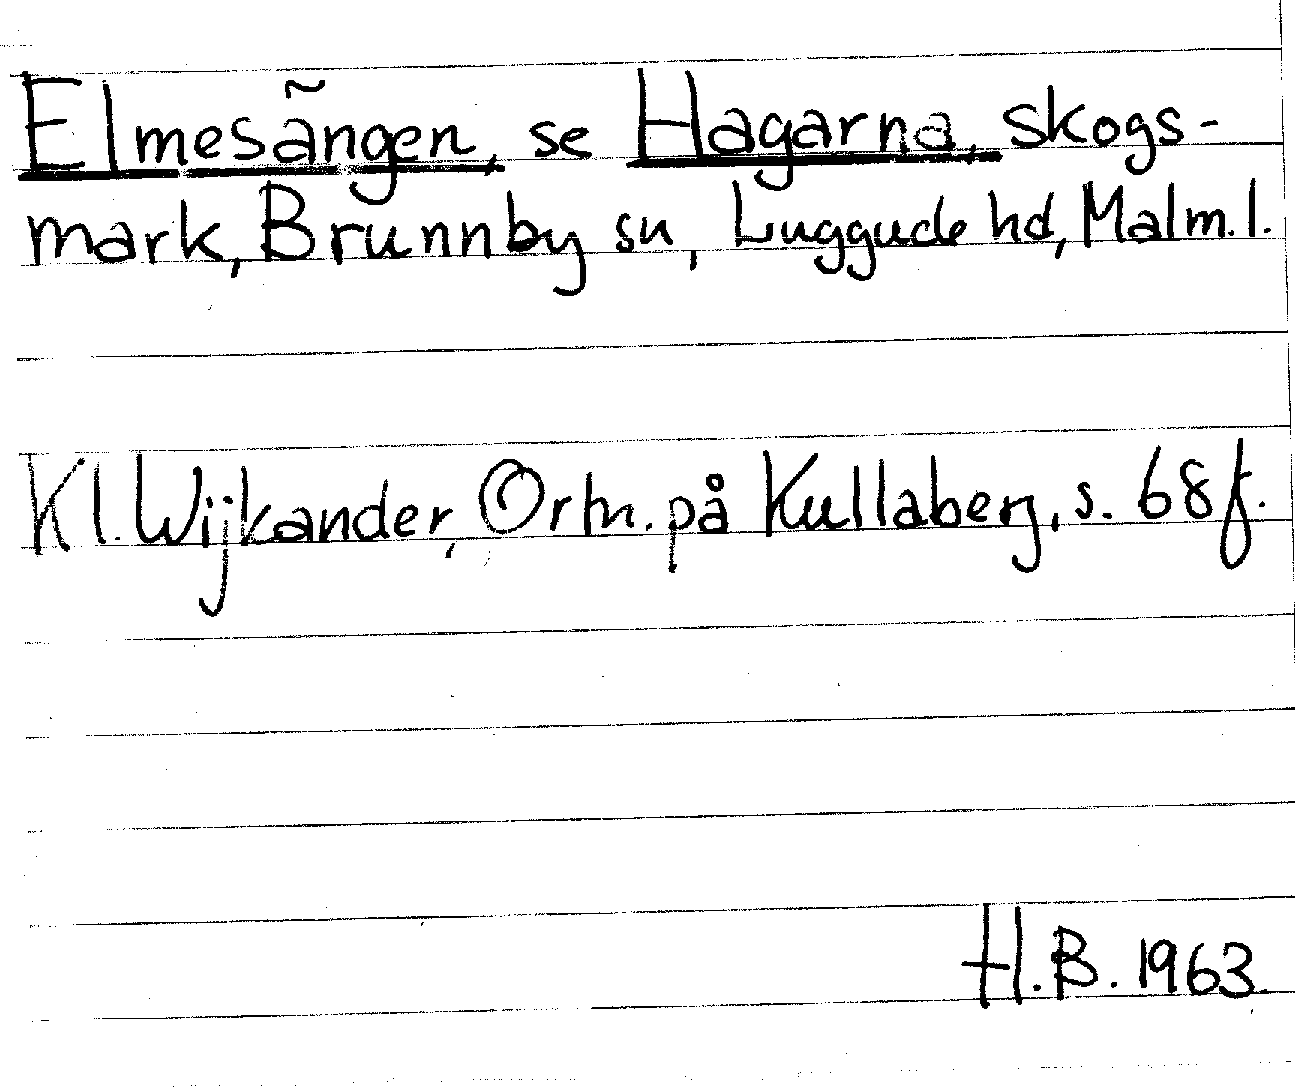 Elmesängen, se Hagarna, skogs-
mark, Brunnby sn, Luggude hd, Malm. l.
Kl. Wijkander, Ortn. på Kullaberg, s. 68 f.
H. B. 1963.